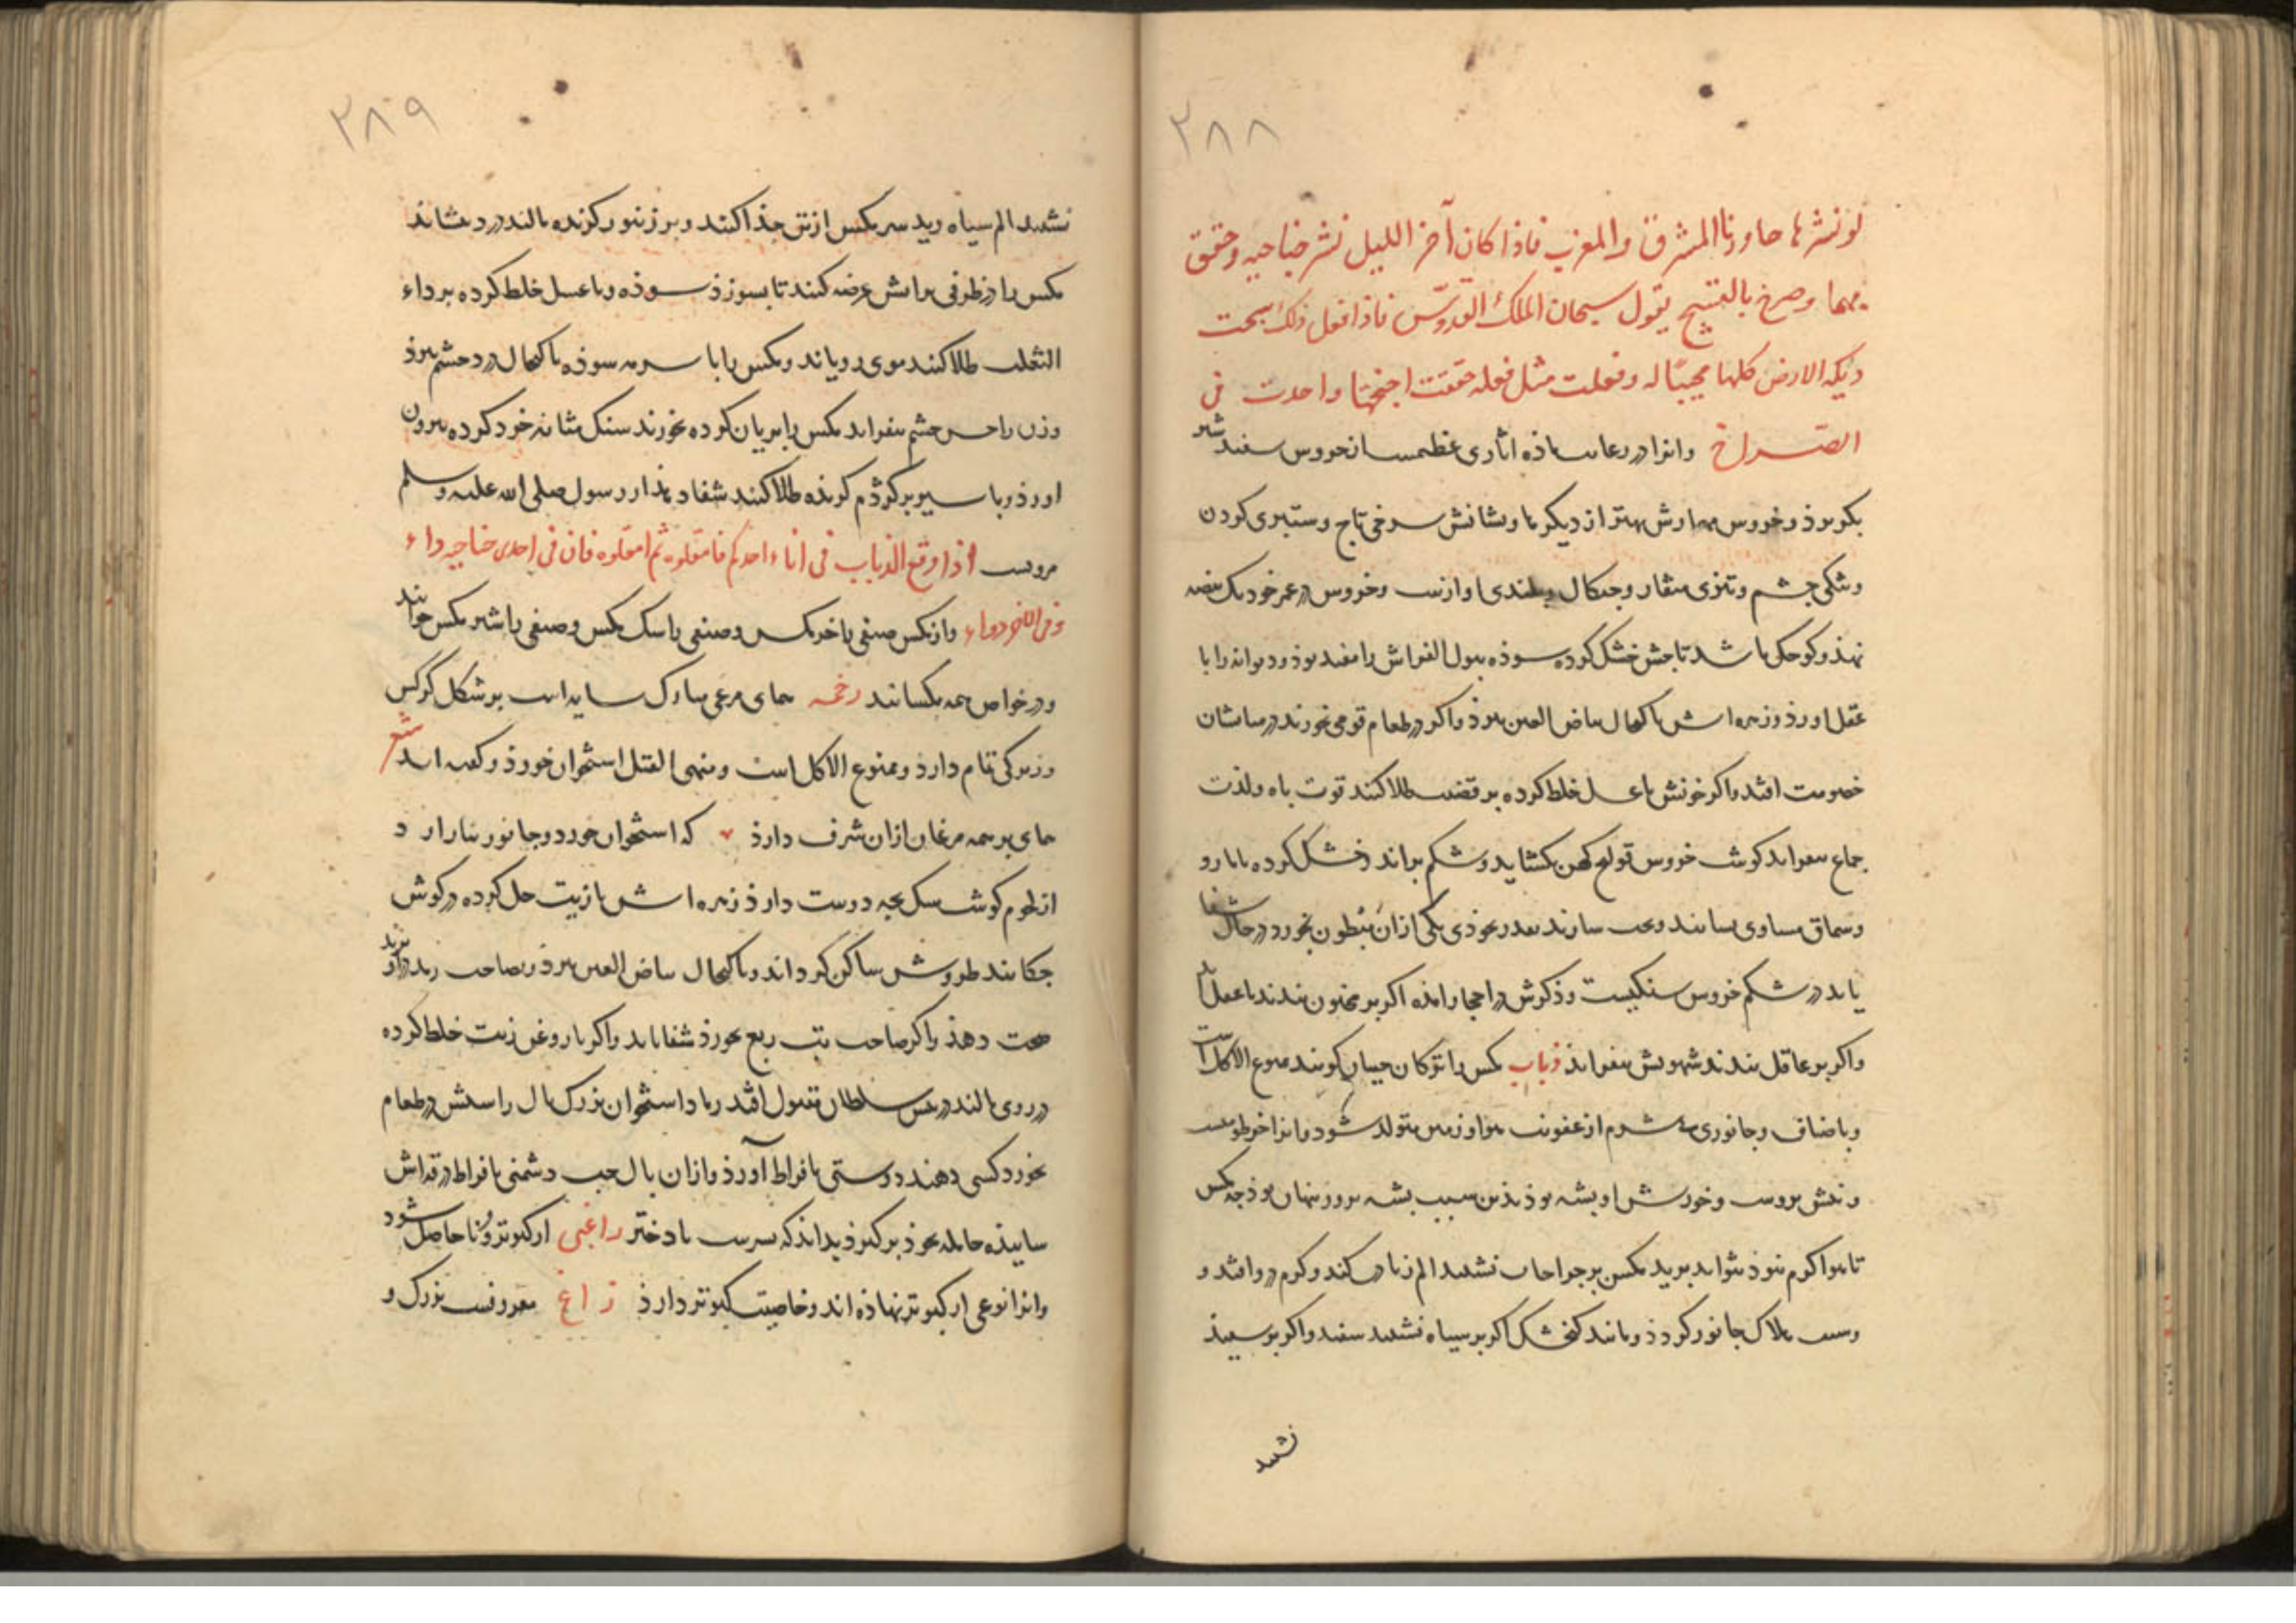 ٢٨٨
لو نشرها جاوزنا المشرق والمغرب فاذا كان آخر الليل نشر جناحيه وخفق
بهما وصرخ بالتسبيح يقول سبحان الملك القدّوس فاذا فعل ذلك سبحت
ديكه الارض كلها مجيبًا له وفعلت مثل فعله خفقت اجنحتها واحدت فى
الصراخ وانرا در رعات ماذه اثارى عظیمست از خروس سفید شیر
بکریزذ و خروس بهارش بهتر از دیکرها و نشانش سرخی تاج و ستبری کردن
و تنکی چشم و تیزی منقار و چنکال و بلندی اوازست و خروس در عمر خود یک بیضه
نهذ و کوچک باشد تاجش خشک کرده سوذه ببول الفراش را مفید بوذ و دیوانه را با
عقل اورذ و زهره اش باکتحال بیاض العین ببرذ و اکر در طعام قومی بخورند در میانشان
خصومت افتد و اکر خونش با عسل خلط کرده بر قضیب طلا کنند قوت باه و لذت
جماع بیفزاید کوشت خروس قولنج کهن بکشاید و شکم براند و خشک کرده با مازو
و سماق مساوی بسایند و حب سازند بقدر نخوذی یکی از ان مبطون بخورد در حال شفا
یابد در شکم خروس سنکیست و ذکرش در احجار امده اکر بر مجنون بندند با عقل اید
و اکر بر عاقل بندند شهوتش بیفزاید ذباب مکس را ترکان چیبان کویند ممنوع الاکل است
و باصناف و جانوری بی شرم از عفونت هوا و زمین متولد شود و انرا خرطومیست
و نیش بروست و خورش او پشه بوذ بذین سبب پشه بروز نهان بوذ چه مکس
تا هوا کرم نبوذ نتواند پرید مکس بر جراحات نشیند الم زیادت کند و کرم درو افتد و
و سبب هلاک جانور کردذ و مانند کنجشک اکر بر سیاه نشیند سفید و اکر بر سپیذ
نشیند
٢٨٩
نشیند الم سیاه رید سر مکس از تن جذا کنند و بر زنبور کزیده مالند درد بنشاند
مکس را در ظرفی بر اتش عرضه کنند تا بسوزذ سوذه و با عسل خلط کرده بر داء
الثعلب طلا کنند موی رویاند و مکس را با سرمه سوذه باکتحال درد چشم ببرذ
وزن را حسن چشم بیفزاید مکس را بریان کرده بخورند سنک مثانه خرد کرده بیرون
اورذ و با سیر بر کژدم کزیذه طلا کنند شفا دهذ از رسول صلی الله علیه وسلم
مرویست اذا وقع الذباب فى اناء احدكم فامقلوه ثم امقلوه فان فى احدى جناحيه داء
وفى الاخر دواء و از مکس صنفی را خرمکس و صنفی را سک مکس و صنفی را شیر مکس خوانند
و در خواص همه یکسانند رخمه همای مرغی مبارک سایه است بر شکل کرکس
و زیرکی تمام دارذ و ممنوع الاکل است و منهی القتل استخوان خورذ و کفته اند شعر
همای بر همه مرغان از ان شرف دارذ که استخوان خورد و جانور نیازارد
از لحوم کوشت سک بچه دوست دارذ زهره اش با زیت حل کرده در کوش
چکانند طروش ساکن کرداند و باکتحال بیاض العین ببرذ و بصاحب ... درآویزند
صحت دهذ و اکر صاحب تب ربع بخورذ شفا یابد و اکر با روغن زیت خلط کرده
در روی مالند در پیش سلطان مقبول افتد ... استخوان بزرک بال راستش در طعام
بخورد کسی دهند دوستی بافراط آورذ و از ان بال چپ دشمنی بافراط در قداش
سائیذه حامله بخوذ برکیرذ بداند که پسرست یا دختر راغبى از کبوتر و ... حاصل شود
و انرا نوعی از کبوتر نهاذه اند و خاصیت کبوتر دارذ زاغ معروفست بزرک و